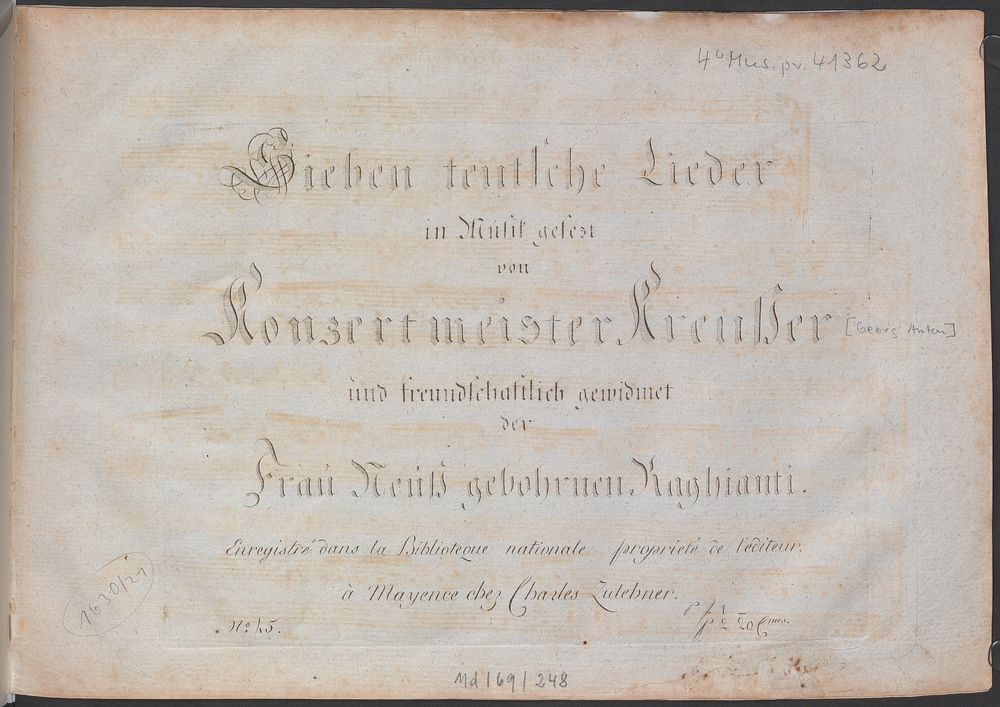 4° Mus.pr. 41362
Sieben teutsche Lieder
in Musik gesezt
von
Konzertmeister Kreußer [Georg Anton]
und freundschaftlich gewidmet
der
Frau Neuß gebohrnen Raghianti.
Enregistré dans la Biblioteque nationale propriété de l'éditeur.
à Mayence chez Charles Zulehner.
1630/21
No 45.
Md/69/248